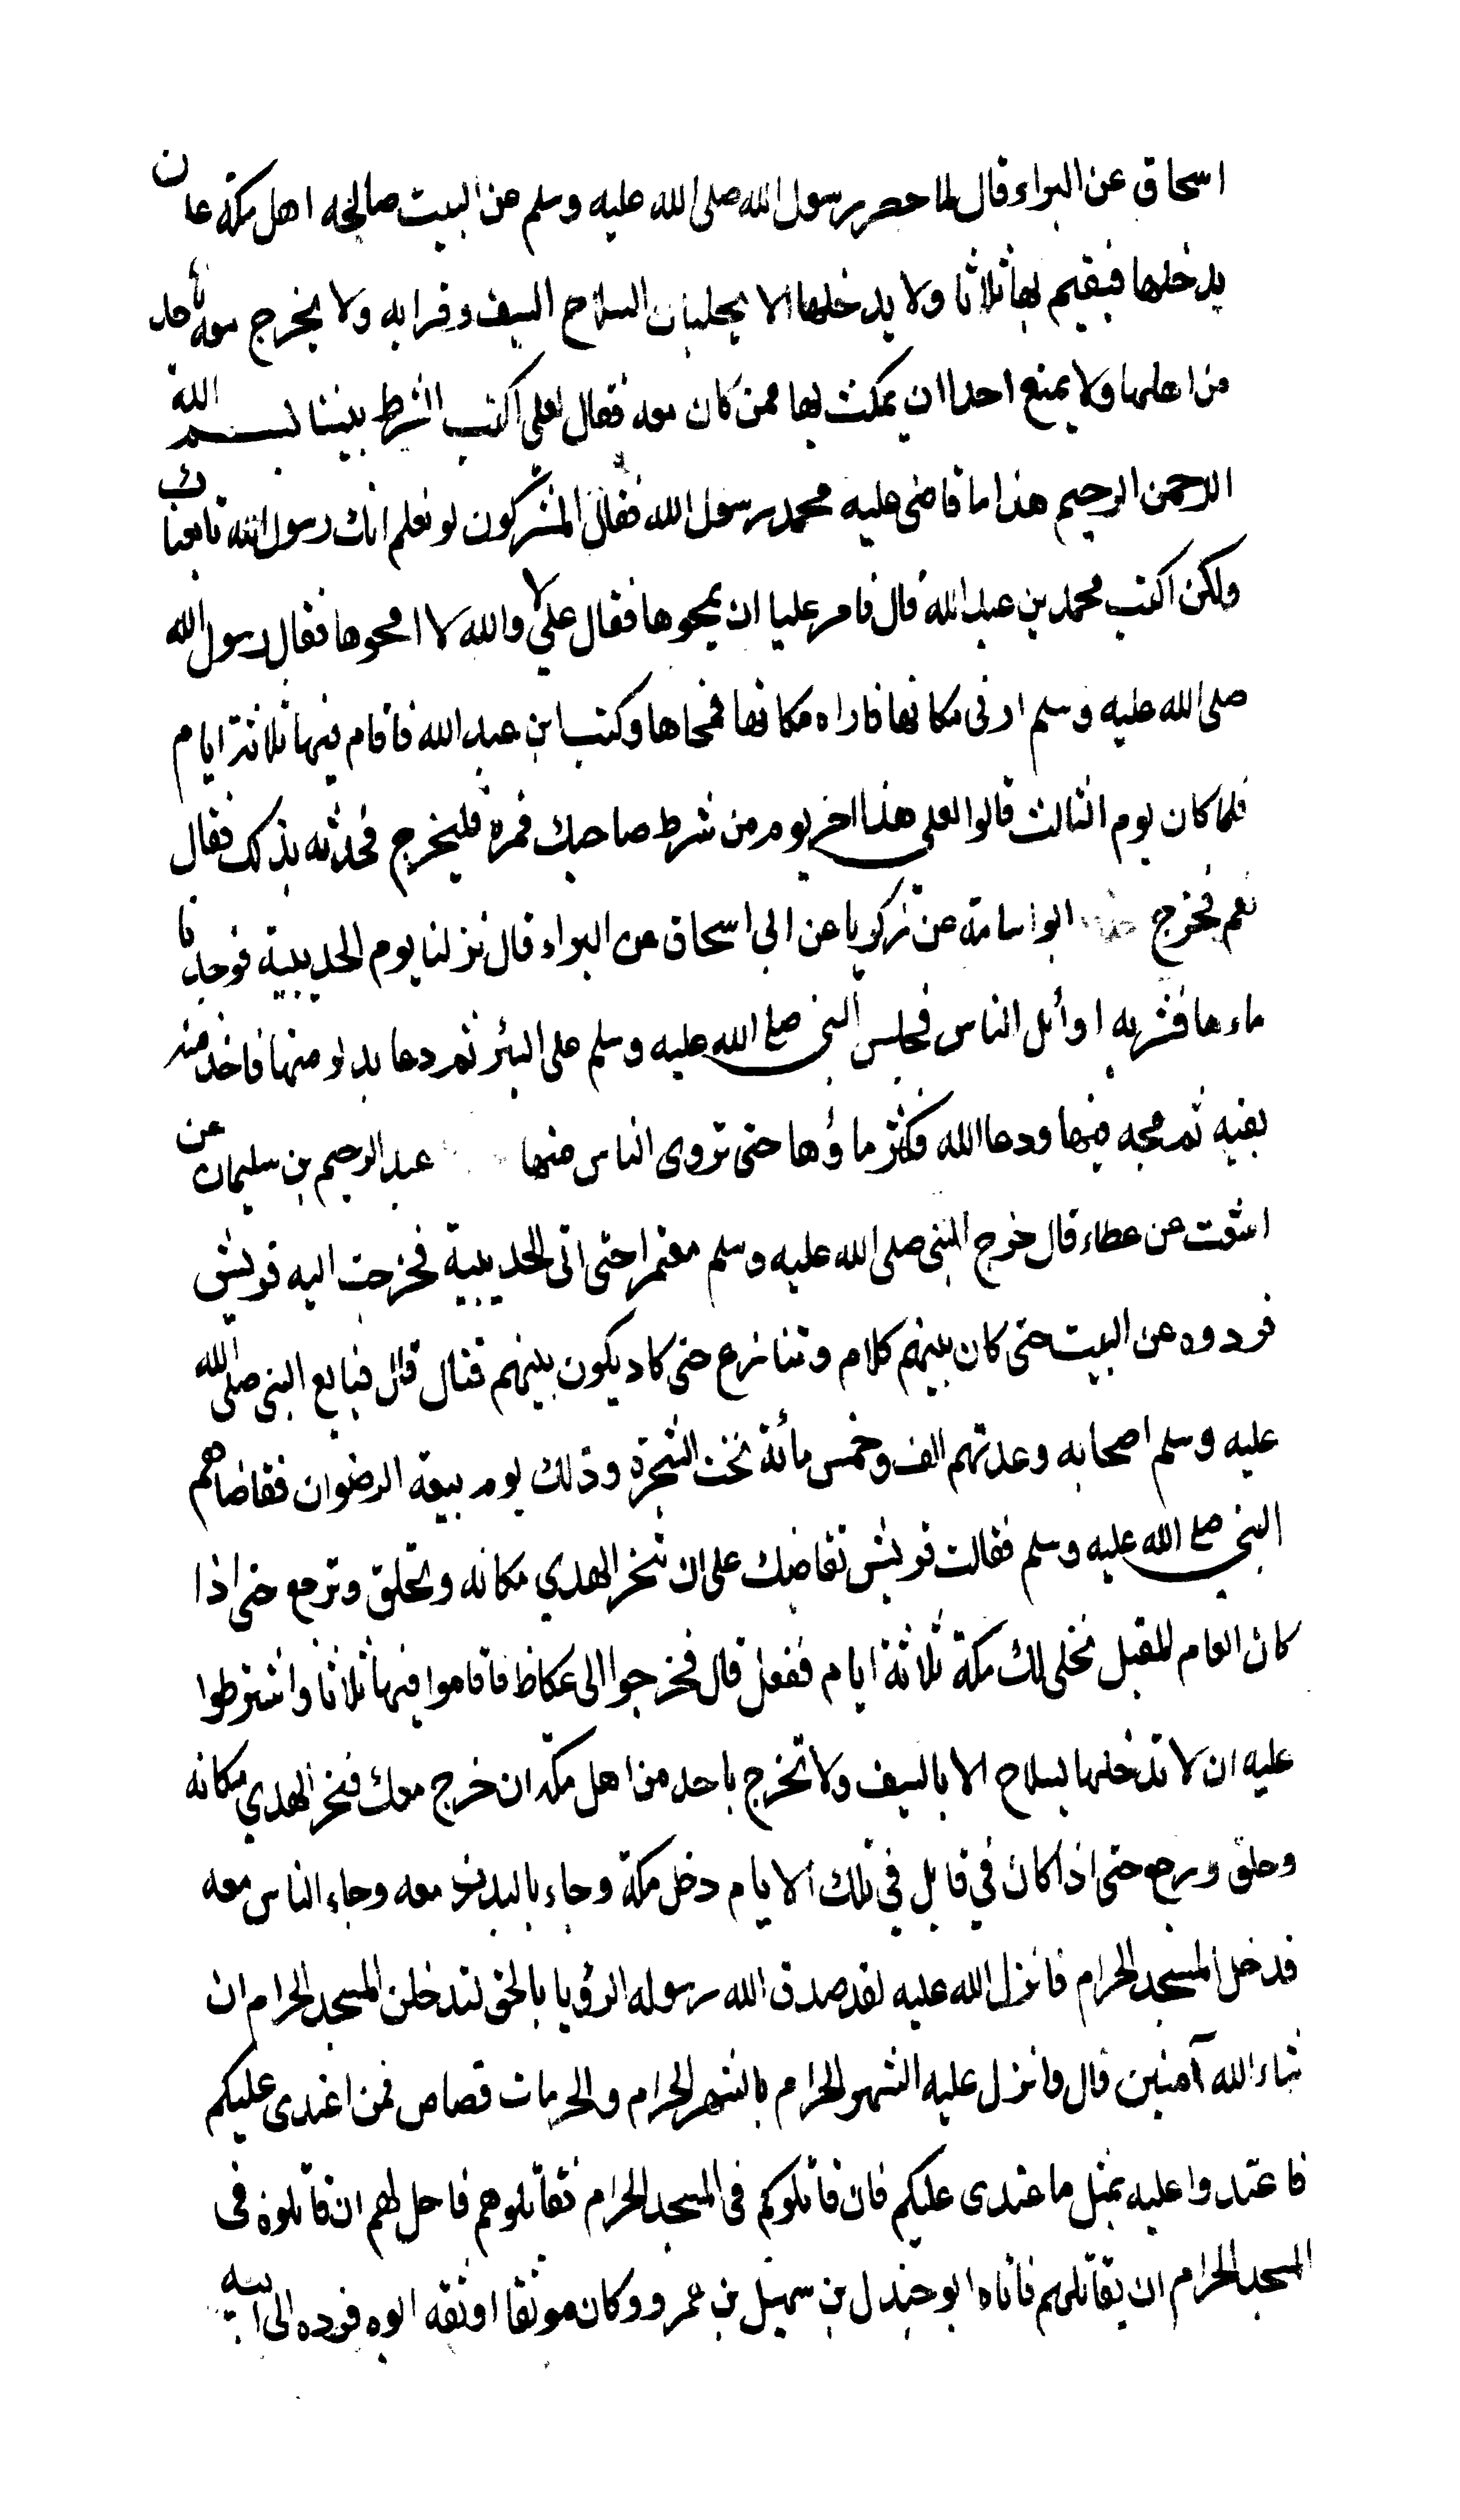 اسحاق عن البراء قال لما حصر رسول الله صلى الله عليه وسلم عن البيت صالحه اهل مكة على ان
يدخلها فيقيم بها ثلاثا ولا يدخلها الا بجلبان السلاح السيف وقرابه ولا يخرج معه باحد
من اهلها ولا يمنع احدا ان يمكث بها ممن كان معه فقال لعلي اكتب الشرط بيننا بسم الله
الرحمن الرحيم هذا ما قاضى عليه محمد رسول الله فقال المشركون لو نعلم انك رسول الله تابعناك
ولكن اكتب محمد بن عبد الله قال فامر عليا ان يمحوها فقال علي لا والله لا امحوها فقال رسول الله
صلى الله عليه وسلم ارني مكانها فاراه مكانها فمحاها وكتب ابن عبد الله فاقام فيها ثلاثة ايام
فلما كان يوم الثالث قالوا لعلي هذا اخر يوم من شرط صاحبك فمره فليخرج فحدثه بذلك فقال
نعم فخرج ابو اسامة عن زكريا عن ابي اسحاق عن البراء قال نزلنا يوم الحديبية فوجدنا
ماءها قد شربه اوائل الناس فجلس النبي صلى الله عليه وسلم على البئر ثم دعا بدلو منها فاخذ منه
بفيه ثم مجه فيها ودعا الله فكثر ماؤها حتى تروى الناس منها عبد الرحيم بن سليمان عن
اشعث عن عطاء قال خرج النبي صلى الله عليه وسلم معتمرا حتى اتى الحديبية فخرجت اليه قريش
فردوه عن البيت حتى كان بينهم كلام وتنازع حتى كاد يكون بينهم قتال قال فبايع النبي صلى الله
عليه وسلم اصحابه وعدتهم الف وخمس مائة تحت الشجرة وذلك يوم بيعة الرضوان فقاضاهم
النبي صلى الله عليه وسلم فقالت قريش نقاضيك على ان تنحر الهدي مكانه وتحلق وترجع حتى اذا
كان العام المقبل نخلي لك مكة ثلاثة ايام ففعل قال فخرجوا الى عكاظ فاقاموا فيها ثلاثا واشترطوا
عليه ان لا تدخلها بسلاح الا بالسيف ولا تخرج باحد من اهل مكة ان خرج معك فنحر الهدي مكانه
وحلق ورجع حتى اذا كان في قابل في تلك الايام دخل مكة وجاء بالبدن معه وجاء الناس معه
فدخل المسجد الحرام فانزل الله عليه لقد صدق الله رسوله الرؤيا بالحق لتدخلن المسجد الحرام ان
شاء الله آمنين قال وانزل عليه الشهر الحرام بالشهر الحرام والحرمات قصاص فمن اعتدى عليكم
فاعتدوا عليه بمثل ما اعتدى عليكم فان قاتلوكم في المسجد الحرام فقاتلوهم فاحل لهم ان قاتلوه في
المسجد الحرام ان يقاتلهم فاتاه ابو جندل بن سهيل بن عمرو وكان موثقا اوثقه ابوه فرده الى ابيه